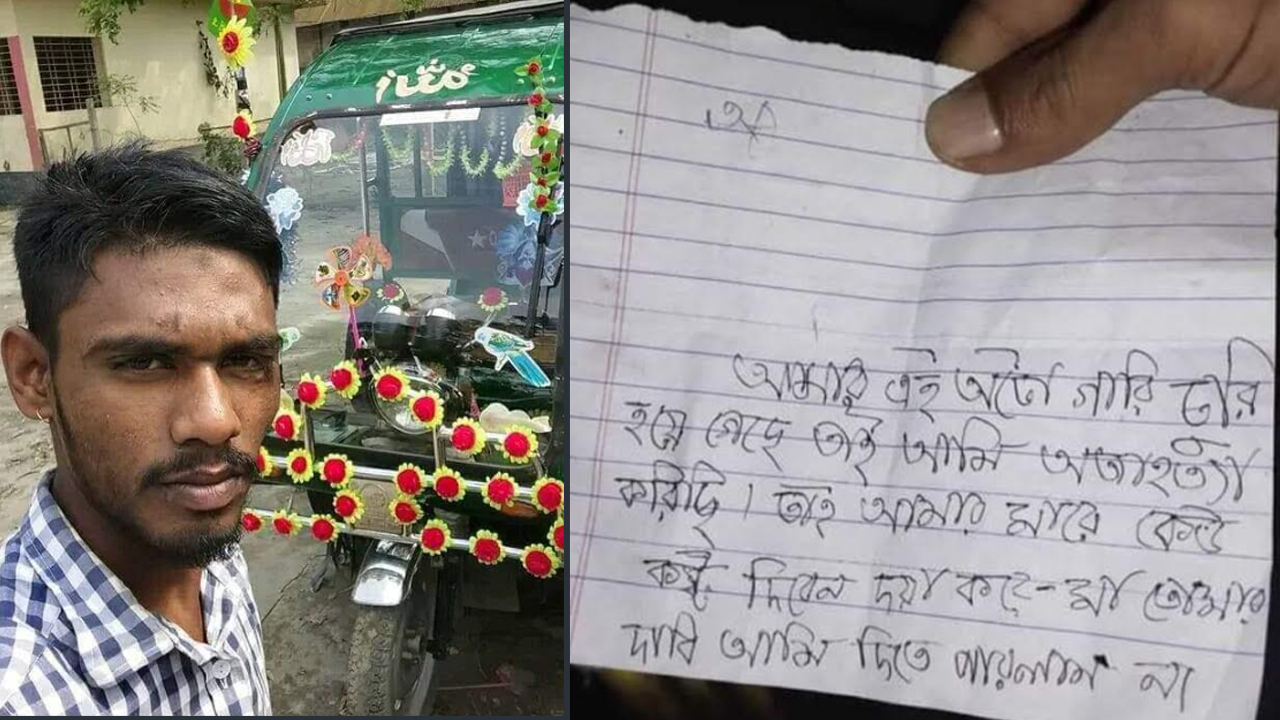 আমার এই অটো গারি চরি
হয়ে গেছে তাই আমি অতাহত্যা
করিছি। তাই আমার মারে কেউ
কষ্ট দিবেন দয়া করে - মা তোমার
দাবি আমি দিতে পারলাম না